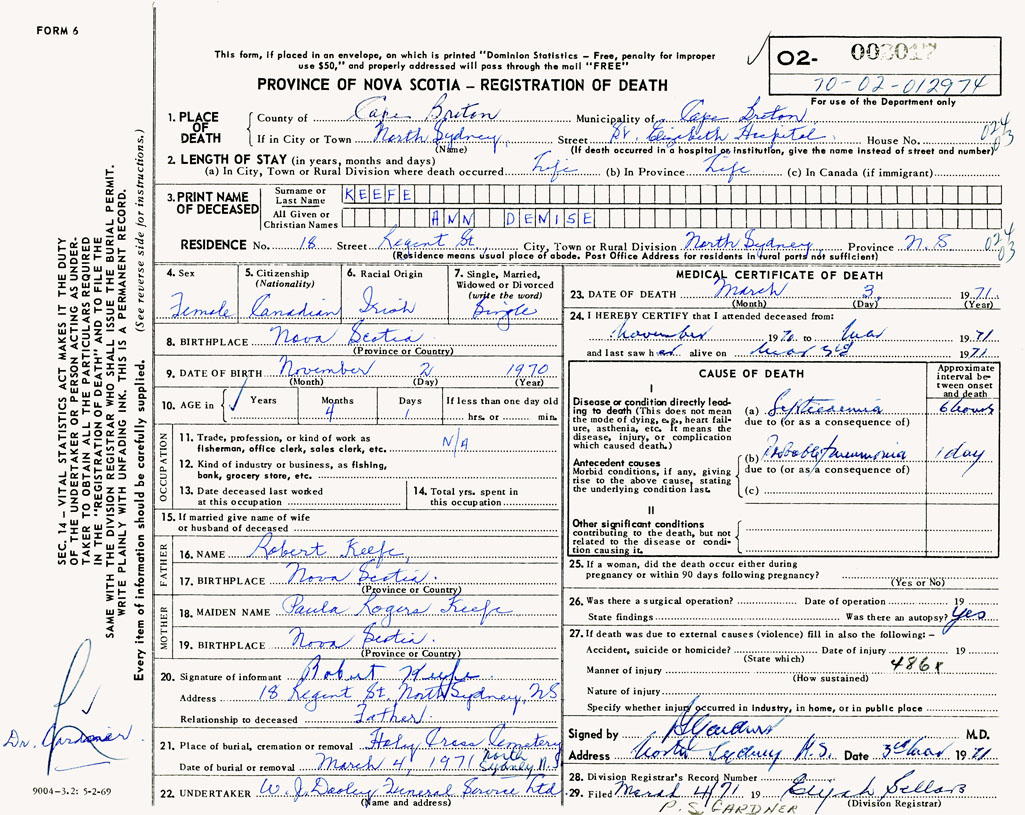 FORM 6
This form, if placed in an envelope, on which is printed "Dominion Statistics – Free, penalty for improper
use $50," and properly addressed will pass through the mail "FREE"
PROVINCE OF NOVA SCOTIA – REGISTRATION OF DEATH
02- 003017
70-02-012974
For use of the Department only
1. PLACE OF DEATH
County of Cape Breton Municipality of Cape Breton
If in City or Town North Sydney Street St. Elizabeth Hospital House No. 024 03
(Name) (If death occurred in a hospital or institution, give the name instead of street and number)
2. LENGTH OF STAY (in years, months and days)
(a) In City, Town or Rural Division where death occurred Life (b) In Province Life (c) In Canada (if immigrant)
3. PRINT NAME OF DECEASED
Surname or Last Name KEEFE
All Given or Christian Names ANN DENISE
RESIDENCE No. 18 Street Regent St., City, Town or Rural Division North Sydney, Province N.S 024 03
(Residence means usual place of abode. Post Office Address for residents in rural parts not sufficient)
4. Sex Female
5. Citizenship (Nationality) Canadian
6. Racial Origin Irish
7. Single, Married, Widowed or Divorced (write the word) Single
8. BIRTHPLACE Nova Scotia
(Province or Country)
9. DATE OF BIRTH November 2 1970
(Month) (Day) (Year)
10. AGE in Years Months 4 Days 1 If less than one day old hrs. or min.
OCCUPATION
11. Trade, profession, or kind of work as fisherman, office clerk, sales clerk, etc. N/A
12. Kind of industry or business, as fishing, bank, grocery store, etc.
13. Date deceased last worked at this occupation
14. Total yrs. spent in this occupation
15. If married give name of wife or husband of deceased
FATHER
16. NAME Robert Keefe
17. BIRTHPLACE Nova Scotia.
(Province or Country)
MOTHER
18. MAIDEN NAME Paula Rogers Keefe
19. BIRTHPLACE Nova Scotia.
(Province or Country)
20. Signature of informant Robert Keefe
Address 18 Regent St. North Sydney, NS
Relationship to deceased Father.
21. Place of burial, cremation or removal Holy Cross Cemetery
Date of burial or removal March 4, 1971 North Sydney N.S
22. UNDERTAKER W. J. Dooley Funeral Service Ltd
(Name and address)
MEDICAL CERTIFICATE OF DEATH
23. DATE OF DEATH March 3, 1971
(Month) (Day) (Year)
24. I HEREBY CERTIFY that I attended deceased from:
November 1970 to Mar 1971
and last saw her alive on Mar 3rd 1971
CAUSE OF DEATH
Approximate interval between onset and death
I
Disease or condition directly leading to death (This does not mean the mode of dying, e.g., heart failure, asthenia, etc. It means the disease, injury, or complication which caused death.)
(a) Septicaemia 6 hours
due to (or as a consequence of)
(b) Probably pneumonia 1 day
due to (or as a consequence of)
(c)
Antecedent causes
Morbid conditions, if any, giving rise to the above cause, stating the underlying condition last.
II
Other significant conditions
contributing to the death, but not related to the disease or condition causing it.
25. If a woman, did the death occur either during pregnancy or within 90 days following pregnancy?
(Yes or No)
26. Was there a surgical operation? Date of operation 19
State findings Was there an autopsy? Yes
27. If death was due to external causes (violence) fill in also the following: –
Accident, suicide or homicide? Date of injury 19
(State which)
Manner of injury 486X
(How sustained)
Nature of injury
Specify whether injury occurred in industry, in home, or in public place
Signed by M.D.
Address North Sydney N.S. Date 3rd Mar 1971
28. Division Registrar's Record Number
29. Filed March 4/71 19
(Division Registrar)
P.S. GARDNER
SEC. 14 – VITAL STATISTICS ACT MAKES IT THE DUTY
OF THE UNDERTAKER OR PERSON ACTING AS UNDER-
TAKER TO OBTAIN ALL THE PARTICULARS REQUIRED
IN THE "REGISTRATION OF DEATH" AND TO FILE THE
SAME WITH THE DIVISION REGISTRAR WHO SHALL ISSUE THE BURIAL PERMIT.
WRITE PLAINLY WITH UNFADING INK. THIS IS A PERMANENT RECORD.
Every item of information should be carefully supplied. (See reverse side for instructions.)
Dr. Gardiner
9004-3.2: 5-2-69